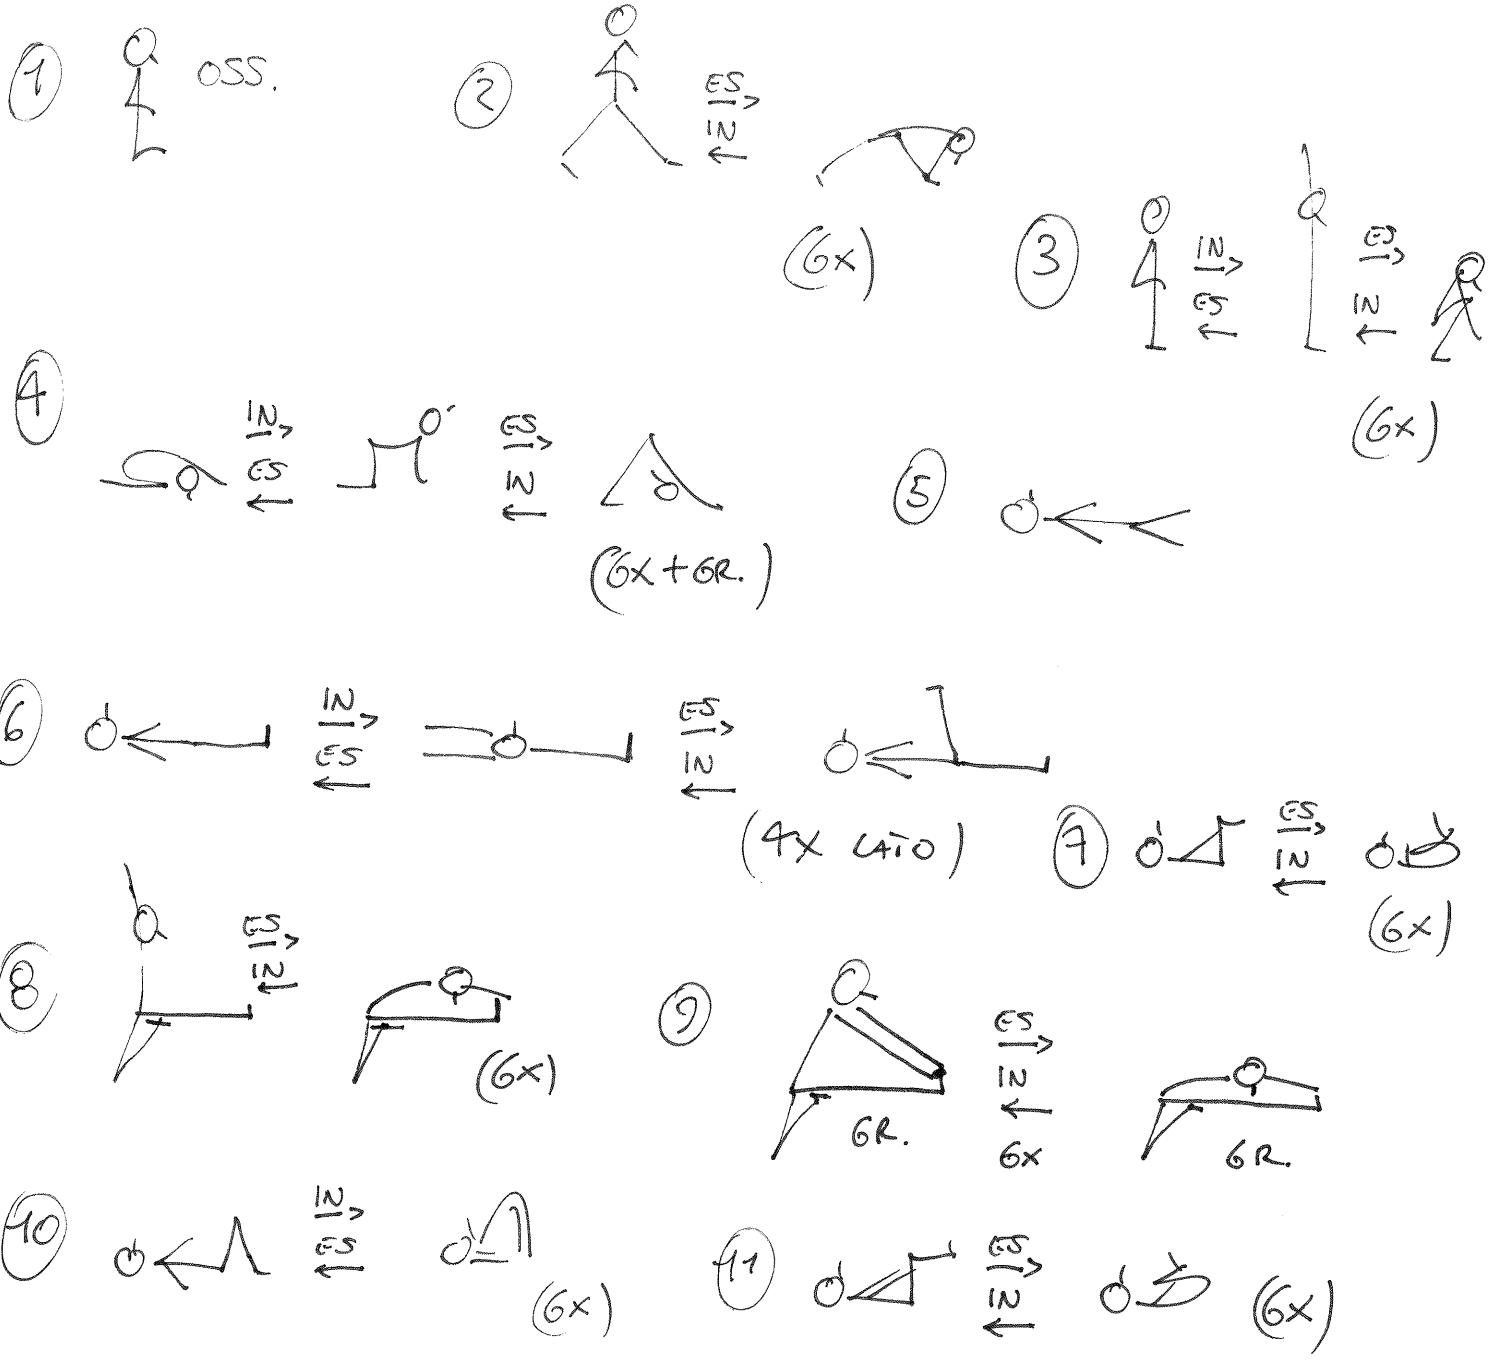 1 OSS.
2 ES
IN
(6X)
3 IN ES
ES IN
(6X)
4 IN ES
ES IN
(6X + 6R.)
5
6 IN ES
ES IN
(4X LATO)
7 ES
IN
(6X)
8 ES
IN
(6X)
9 ES
IN
6R. 6X 6R.
10 IN
ES
(6X)
11 ES
IN
(6X)